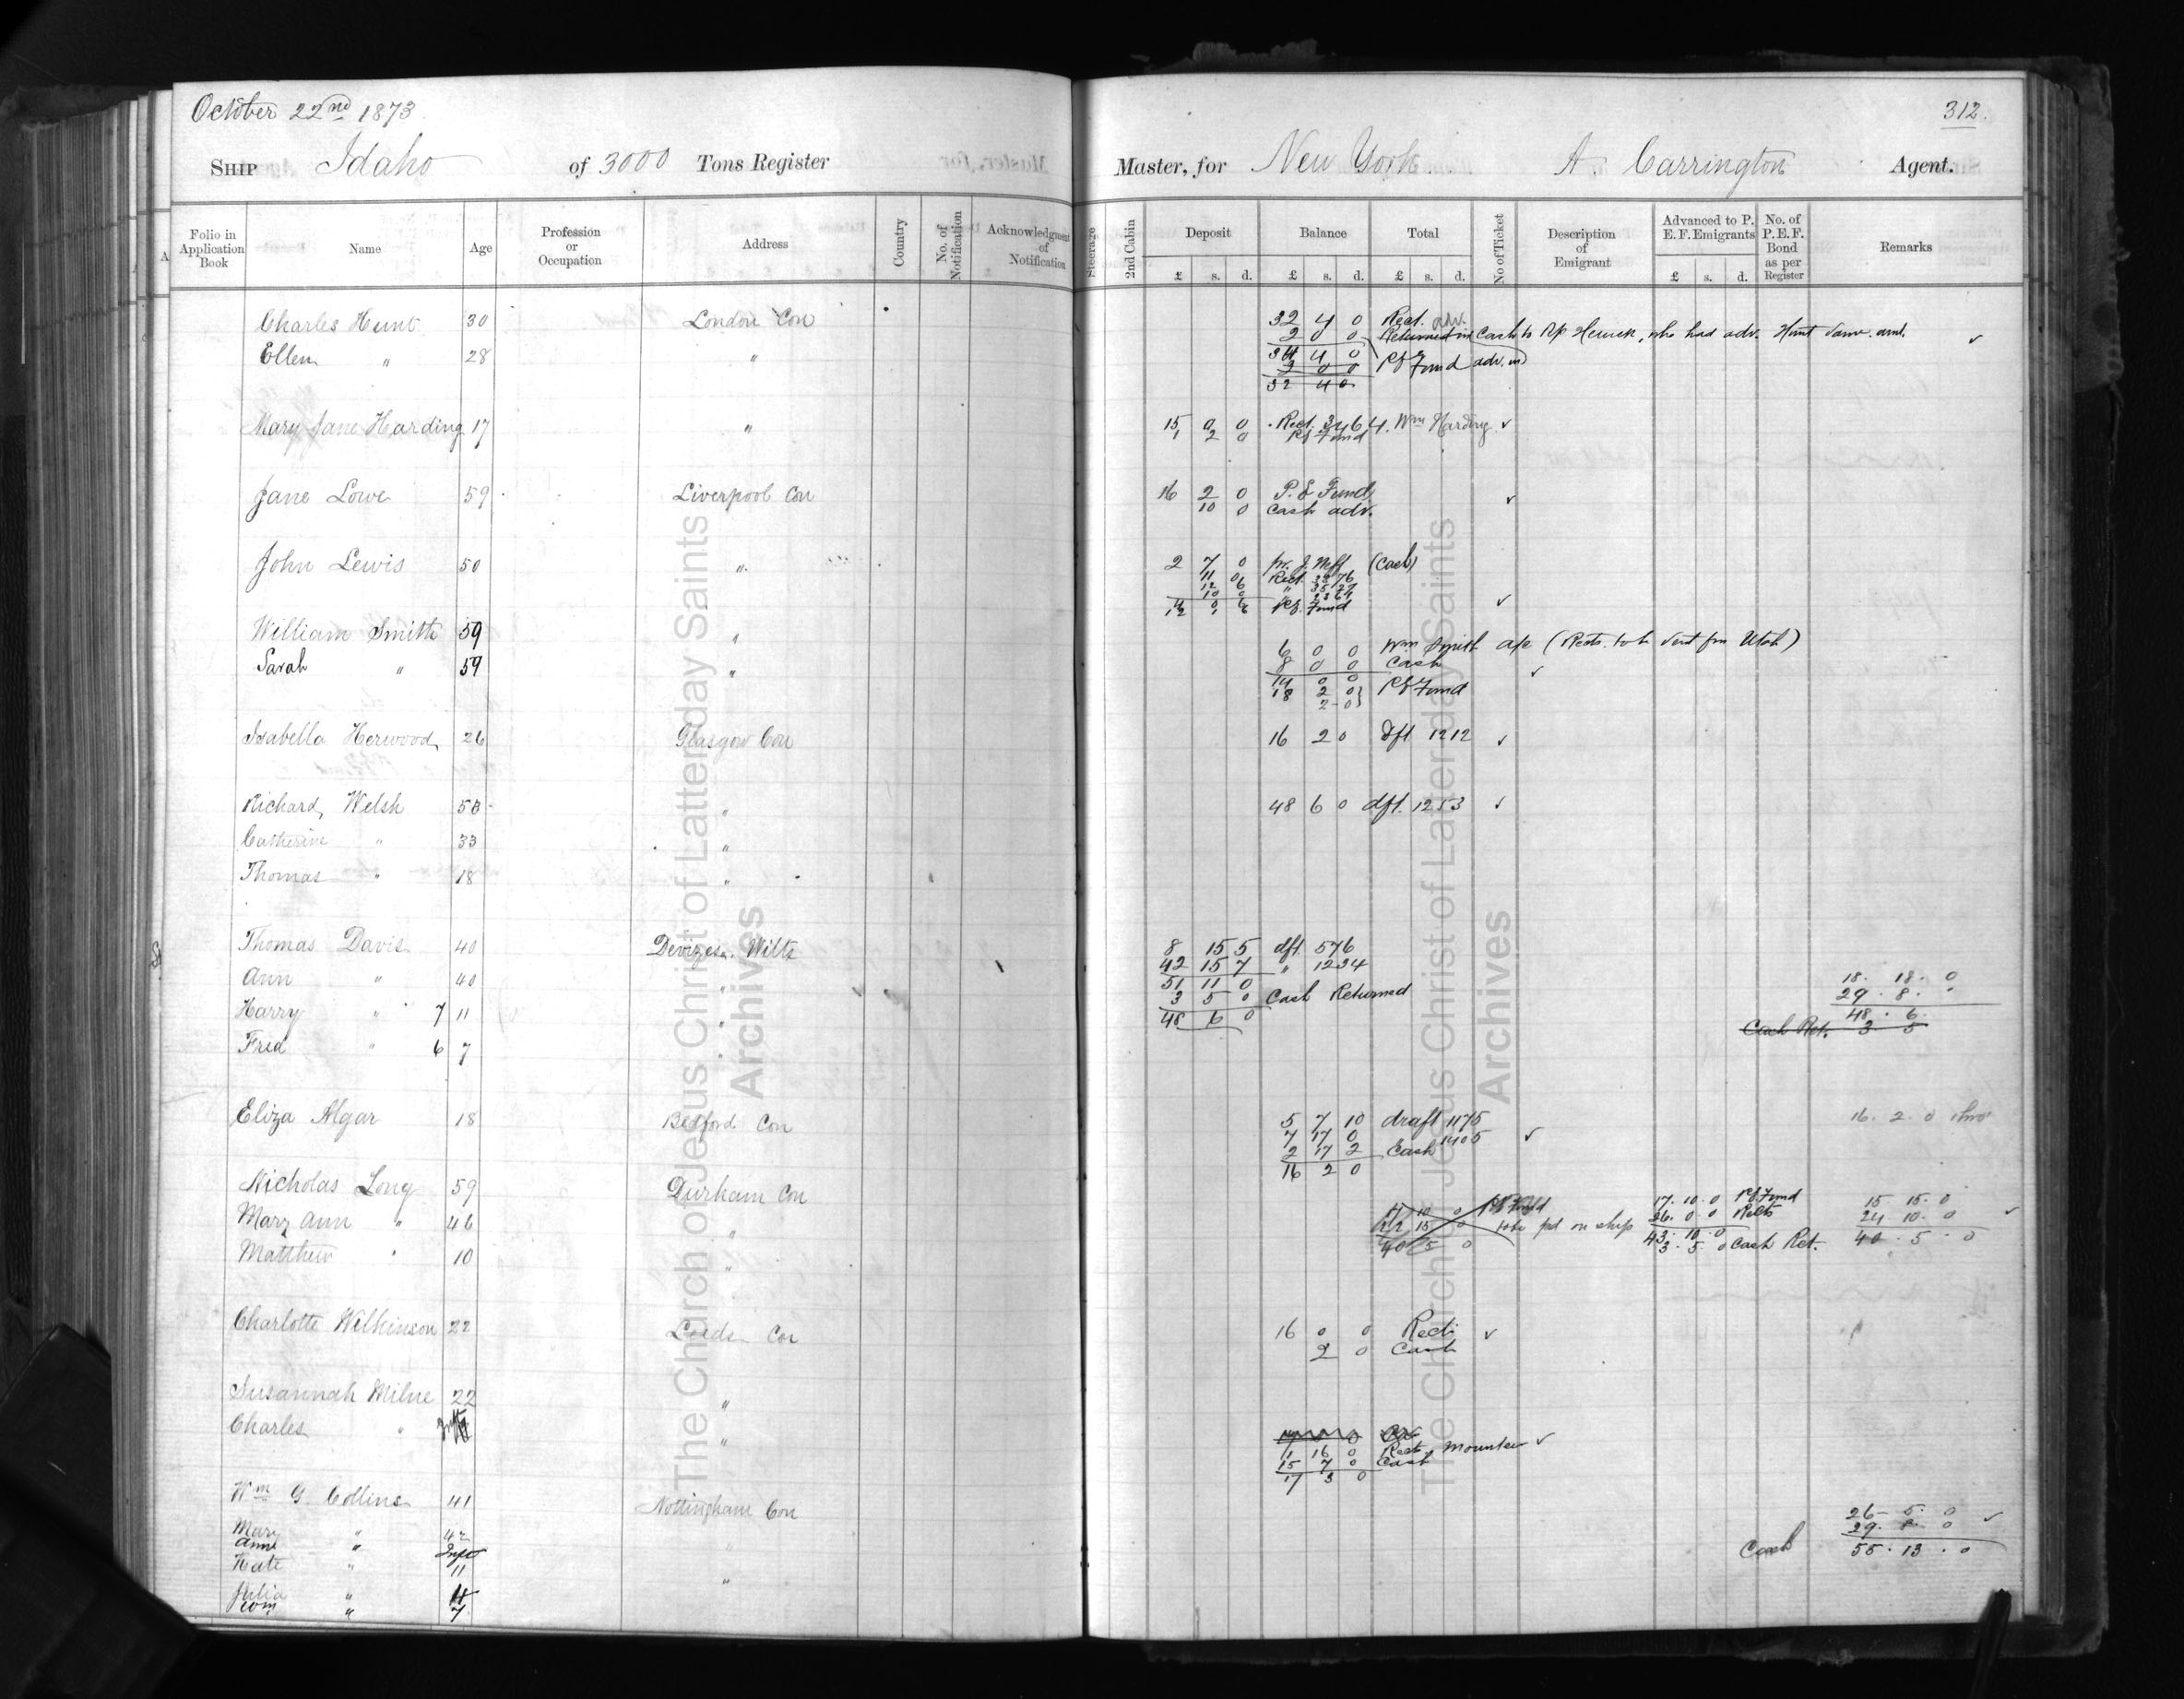 October 22nd 1873.
312.
Ship Idaho of 3000 Tons Register Master, for New York A. Carrington Agent.
Folio in Application Book Name Age Profession or Occupation Address Country No. of Notification Acknowledgment of Notification Steerage 2nd Cabin Deposit Balance Total No of Ticket Description of Emigrant Advanced to P. E. F. Emigrants No. of P. E. F. Bond as per Register Remarks
£ s. d. £ s. d. £ s. d. £ s. d.
Charles Hunt 30 London Con 32 4 0 Rect. adv.
2 0 0 Returned in Cash to who had adv. Hunt same amt.
Ellen " 28 " 34 4 0
2 0 0 P E Fund adv.
32 4 0
Mary Jane Harding 17 " 15 0 0 Rect. 3464. Wm Harding ✓
1 2 0 P E Fund
Jane Lowe 59 Liverpool Con 16 2 0 P. E Fund ✓
10 0 Cash adv.
John Lewis 50 " 2 7 0 pr. J. Neff (Cash)
11 0 Rect. 3376
12 6 "
10 0 "
P E. Fund ✓
William Smith 59 " 6 0 0 Wm Smith a/c (Rects. to be sent fm Utah)
Sarah " 59 " 8 0 0 Cash ✓
14 0 0
18 2 0 P E Fund
2 0
Isabella Herwood 26 Glasgow Con 16 2 0 Dft 1212 ✓
Richard Welsh 58 " 48 6 0 dft. 1253 ✓
Catherine " 33 "
Thomas " 18 "
Thomas Davis 40 Devizes, Wilts 8 15 5 dft 576
Ann " 40 " 42 15 7 " 1234
51 11 0 18. 18. 0
Harry " 7 11 " 3 5 0 Cash Returned 29. 8. "
48 6 0 48. 6.
Fred " 6 7 " Cash Ret. 3 5
Eliza Algar 18 Bedford Con 5 7 10 draft 1175 16. 2. 0
7 17 0 1405 ✓
2 17 2 Cash
16 2 0
Nicholas Long 59 Durham Con 17 10 0 P E Fund 17. 10. 0 P E Fund 15 15. 0
Mary Ann " 46 " 22 15 0 to be pd on ship 26. 0. 0 Rects 24. 10. 0 ✓
40 5 0 43. 10. 0
Matthew " 10 " 3. 5. 0 Cash Ret. 40. 5. 0
Charlotte Wilkinson 22 Leeds Con 16 0 0 Rect. ✓
2 0 Cash
Susannah Milne 22 "
Charles " Inft "
1 16 0 Rect. ✓
15 7 0 Cash
17 3 0
Wm G. Collins 41 Nottingham Con
26. 5. 0 ✓
Mary " 42 " 29. 8. 0
Anne " Inft Cash 55. 13. 0
Kate " 11
Julia " "
Tom " 7
The Church of Jesus Christ of Latter-day Saints
Archives
The Church of Jesus Christ of Latter-day Saints
Archives